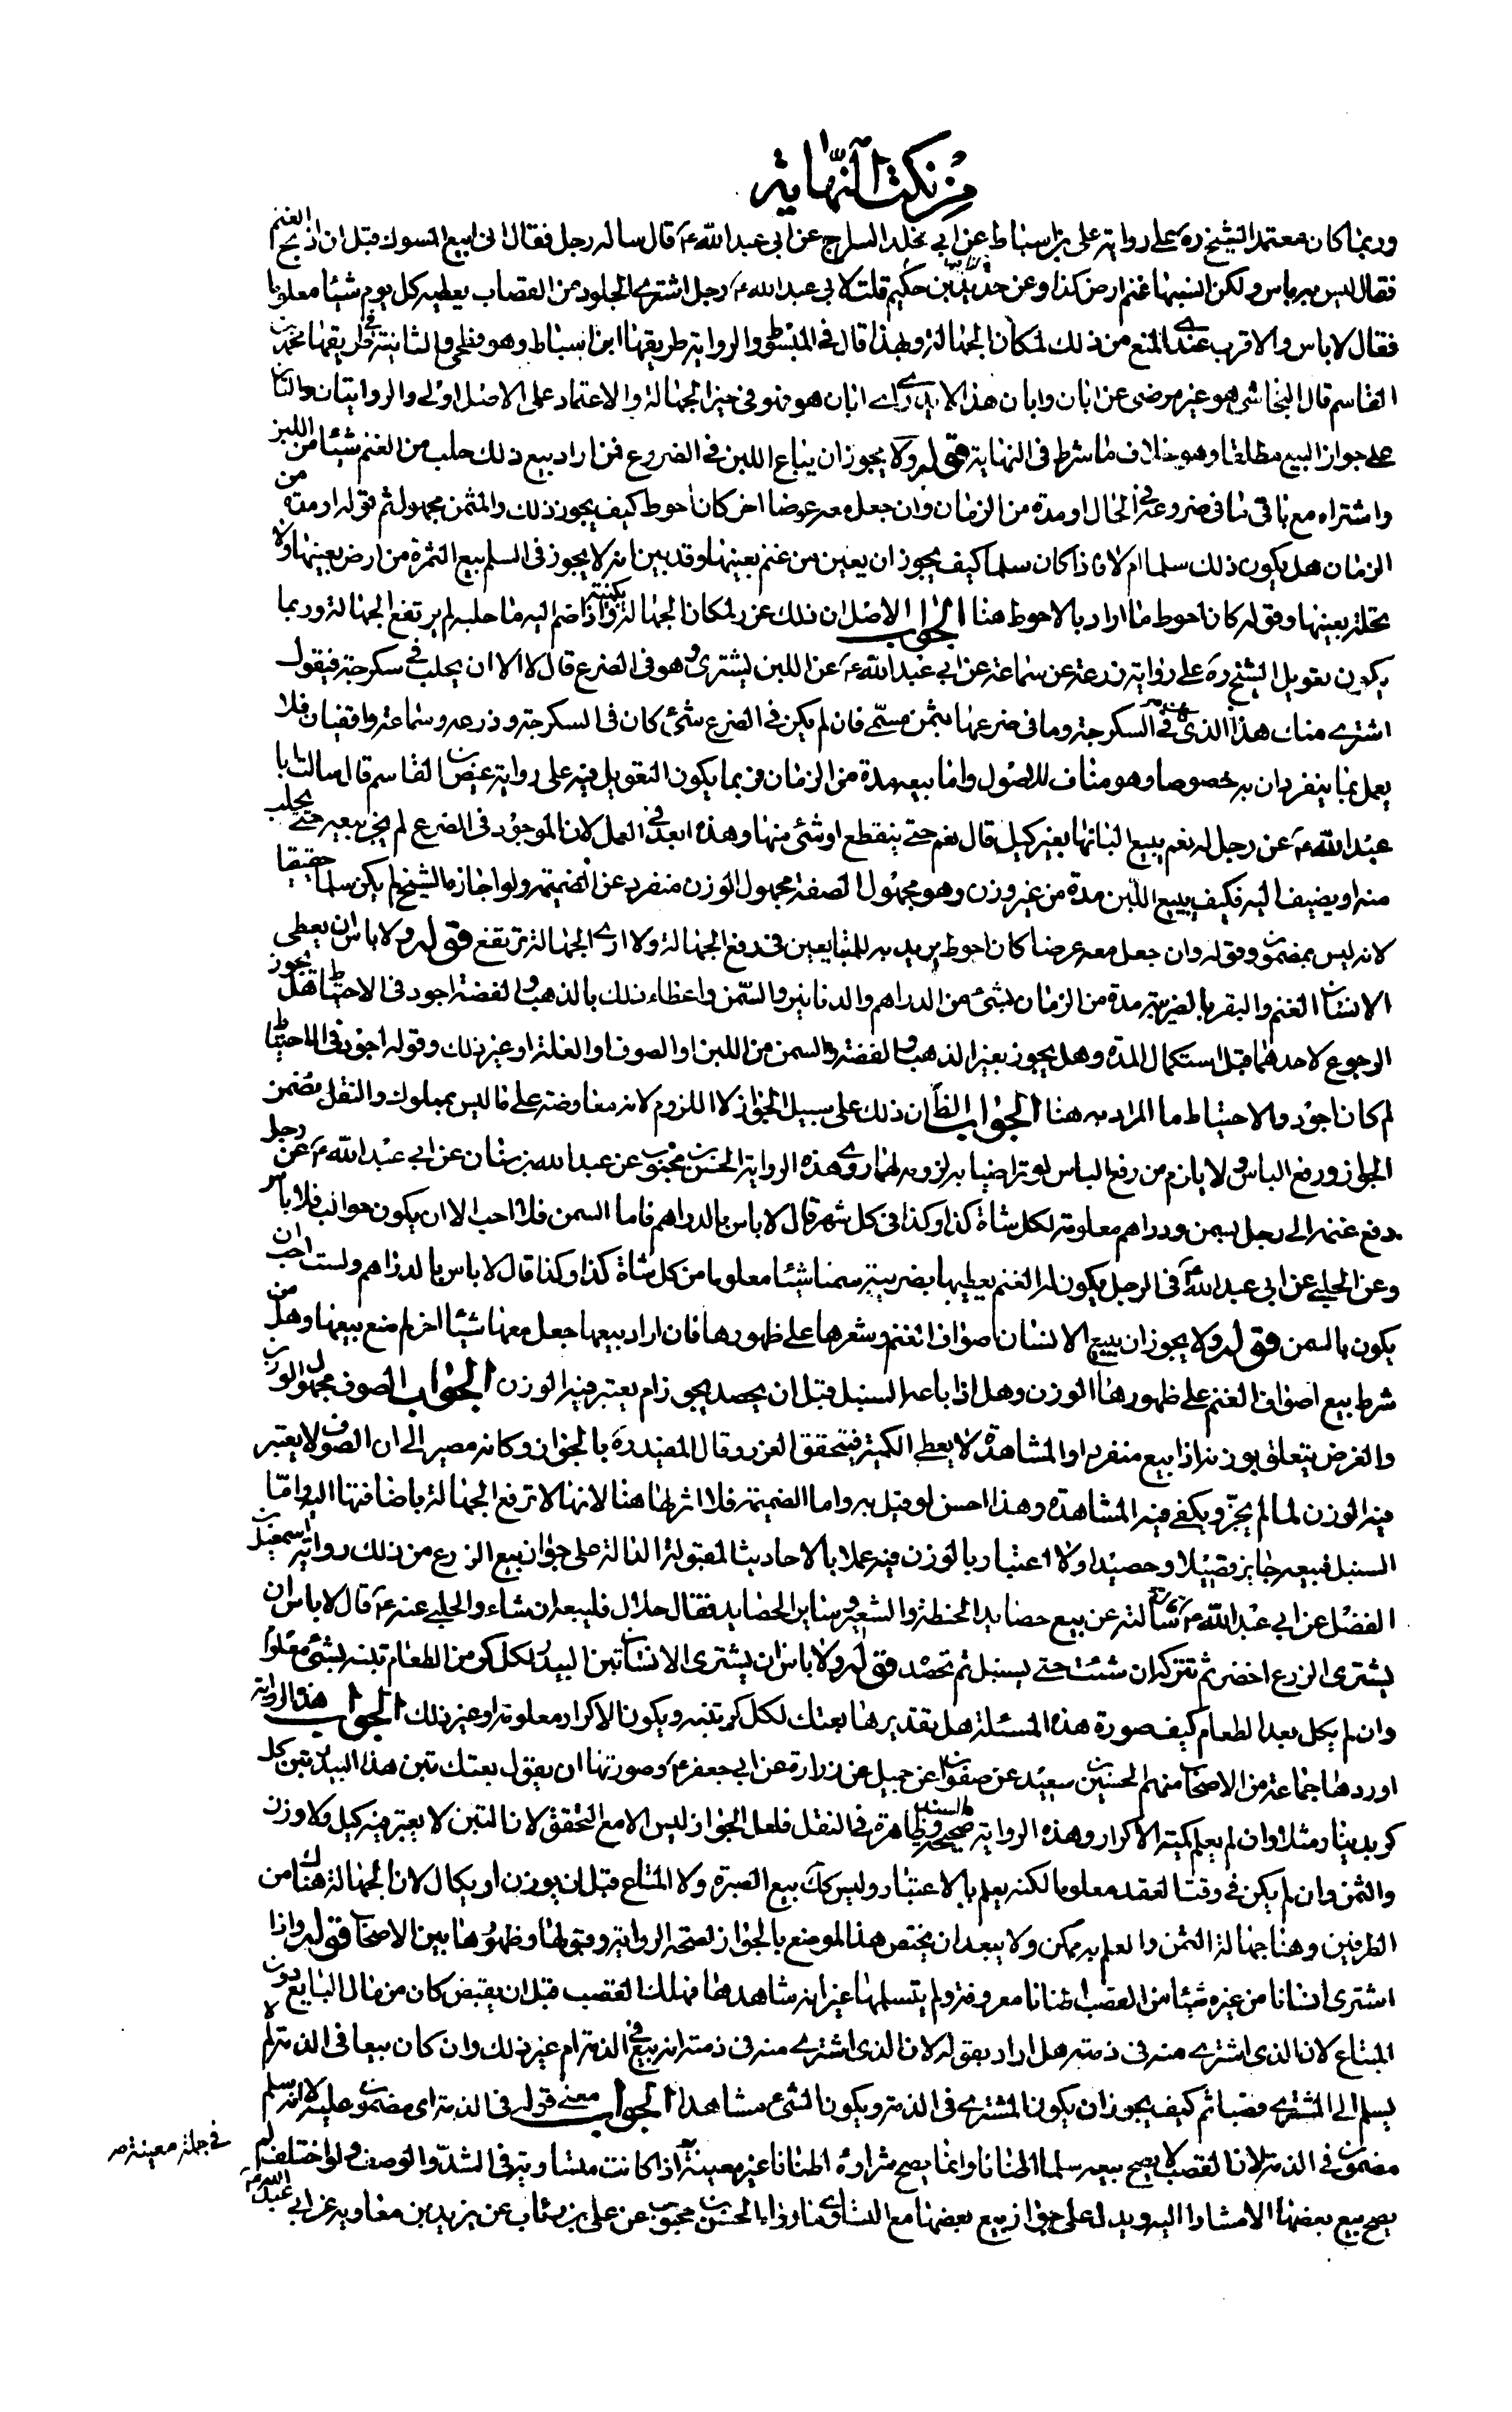 من نكت النهاية
وربما كان معتمد الشيخ ره على رواية على بن اسباط عن ابي مخلد السراج عن ابي عبد الله ع قال ساله رجل فقال انى ابيع المسوك قبل ان اذبح الغنم
فقال ليس به باس ولكن انسبها غنم ارض كذا وعن حديد بن حكيم قلت لابي عبد الله ع رجل اشترى الجلود من القصاب يعطيه كل يوم شيئا معلوما
فقال لا باس والاقرب عندى المنع من ذلك لمكان الجهالة وبهذا قال في المبسوط والرواية طريقها ابن اسباط وهو فطحى والثانية في طريقها محمد بن
القاسم قال النجاشى هو غير مرضى عن ابان وابان هذا لا يدرى اى ابان هو فهو في حيز الجهالة والاعتماد على الاصل اولى والروايتان دالتان
على جواز البيع مطلقا وهو خلاف ما شرط في النهاية قوله ولا يجوز ان يباع اللبن في الضروع فمن اراد بيع ذلك حلب من الغنم شيئا من اللبن
واشتراه مع ما بقى في ضروعه في الحال او مدة من الزمان وان جعل معه عوضا اخر كان احوط كيف يجوز ذلك والمثمن مجهول ثم قوله او مدة من
الزمان هل يكون ذلك سلما ام لا فاذا كان سلما كيف يجوز ان يعين من غنم بعينها وقد بين انه لا يجوز في السلم بيع الثمرة من ارض بعينها ولا
نخلة بعينها وقوله كان احوط ما اراد بالاحوط هنا الجواب الاصل ان ذلك غرر لمكان الجهالة بكميته واذا ضم اليه ما حلبه لم يرتفع الجهالة وربما
يكون تعويل الشيخ ره على رواية زرعة عن سماعة عن ابي عبد الله ع عن اللبن يشترى وهو في الضرع قال لا الا ان يحلب في سكرجة فيقول
اشترى منك هذا الذى في السكرجة وما في ضرعها بثمن مسمى فان لم يكن في الضرع شئ كان في السكرجة وزرعه وسماعة واقفيان فلا
يعمل بما ينفردان به خصوصا وهو مناف للاصول واما بيعه مدة من الزمان فربما يكون التعويل فيه على رواية عيص بن القاسم قال سالت ابا
عبد الله ع عن رجل له نعم يبيع البانها بغير كيل قال نعم حتى ينقطع او شئ منها وهذه ابعد في العمل لان الموجود في الضرع لم يجز بيعه حتى يحلب
منه او يضيف اليه فكيف يبيع اللبن مدة من غير وزن وهو مجهول الصفة مجهول الوزن منفرد عن الضميمة ولو اجازه الشيخ لم يكن سلما حقيقيا
لانه ليس بمضمون وقوله وان جعل معه عرضا كان احوط يريد به للمتبايعين في دفع الجهالة ولا ارى الجهالة ترتفع قوله ولا باس ان يعطى
الانسان الغنم والبقر بالضريبة مدة من الزمان بشئ من الدراهم والدنانير والسمن واعطاء ذلك بالذهب والفضة اجود في الاحتياط هل يجوز
الرجوع لاحدهما قبل استكمال المدة وهل يجوز بغير الذهب والفضة والسمن من اللبن او الصوف او الغلة او غير ذلك وقوله اجود في الاحتياط
لم كان اجود والاحتياط ما المراد به هنا الجواب الظا ان ذلك على سبيل الجواز لا اللزوم لانه معاوضة على ما ليس بمملوك والنقل يضمن
الجواز ورفع الباس ولا يلزم من رفع الباس لو تراضيا به لزومه لهما روى هذه الرواية الحسن بن محبوب عن عبد الله بن سنان عن ابي عبد الله ع عن رجل
دفع غنمه الى رجل بسمن ودراهم معلومة لكل شاة كذا وكذا في كل شهر قال لا باس بالدراهم فاما السمن فلا احب الا ان يكون حوالب فلا باس
وعن الحلبى عن ابي عبد الله ع في الرجل يكون له الغنم يعطيها بضريبة سمنا شيئا معلوما من كل شاة كذا وكذا قال لا باس بالدراهم ولست احب ان
يكون بالسمن قوله ولا يجوز ان يبيع الانسان اصواف الغنم وشعرها على ظهورها فان اراد بيعها جعل معها شيئا اخر لم منع بيعها وهل من
شرط بيع اصواف الغنم على ظهورها الوزن وهل اذا باعه السنبل قبل ان يحصد يجوز ام يعتبر فيه الوزن الجواب الصوف مجهول الوزن
والغرض يتعلق بوزنه اذا بيع منفردا والمشاهدة لا يعطى الكمية فيتحقق الغرر وقال المفيد ره بالجواز وكانه مصير الى ان الصوف لا يعتبر
فيه الوزن لما لم يجز ويكفى فيه المشاهدة وهذا احسن لو قيل به واما الضميمة فلا اثر لها هنا لانها لا ترفع الجهالة باضافتها اليه واما
السنبل فبيعه جايز قصيلا وحصيدا ولا اعتبار بالوزن فيه عملا بالاحاديث المقبولة الدالة على جواز بيع الزرع من ذلك رواية اسمعيل بن
الفضل عن ابي عبد الله ع سالته عن بيع حصايد الحنطة والشعير وساير الحصايد فقال حلال فليبعه ان شاء والحلبى عنه ع قال لا باس ان
يشترى الزرع اخضر ثم تتركه ان شئت حتى يسنبل ثم تحصد قوله ولا باس ان يشترى الانسان تبن البيدر لكل كر من الطعام تبنه بشئ معلوم
وان لم يكل بعد الطعام كيف صورة هذه المسئلة هل تقديرها بعتك لكل كر تبنه ويكون الاكرار معلومة او غير ذلك الجواب هذه الرواية
اوردها جماعة من الاصحاب منهم الحسين بن سعيد عن صفوان عن جميل عن زرارة عن ابي جعفر ع وصورتها ان يقول بعتك تبن هذا البيدر تبن كل
كر بدينار مثلا وان لم يعلم كمية الاكرار وهذه الرواية صحيحة السند وظاهرة في النقل فلعل الجواز ليس الا مع التحقق لان التبن لا يعتبر فيه كيل ولا وزن
والثمن وان لم يكن في وقت العقد معلوما لكنه يعلم بالاعتبار وليس كك بيع الصبرة ولا المتاع قبل ان يوزن او يكال لان الجهالة هناك من
الطرفين وهنا جهالة الثمن والعلم به ممكن ولا يبعد ان يختص هذا الموضع بالجواز لصحة الرواية وقبولها وظهورها بين الاصحاب قوله واذا
اشترى انسانا من غيره شيئا من القصب اطنانا معروفة ولم يتسلمها غير انه شاهدها فهلك القصب قبل ان يقبض كان من مال البايع دون
المبتاع لان الذى اشترى منه في ذمته هل اراد بقوله لان الذى اشترى منه في ذمته انه بيع في الذمة ام غير ذلك وان كان بيعا في الذمة لم لا
يسلم الى المشترى قصبا ثم كيف يجوز ان يكون المشترى في الذمة ويكون الشئ مشاهدا الجواب معنى قوله في الذمة اى مضمون عليه لا انه سلم
مضمون في الذمة لان القصب لا يصح بيعه سلما اطنانا وانما يصح شراؤه اطنانا غير معينة اذا كانت متساوية في الشد والوصف ولو اختلف لم
في جملة معينة صح
يصح بيع بعضها الا مشارا اليه ويدل على جواز بيع بعضها مع التساوى ما رواه الحسن بن محبوب عن على بن رئاب عن بريد بن معاوية عن ابي عبد الله ع